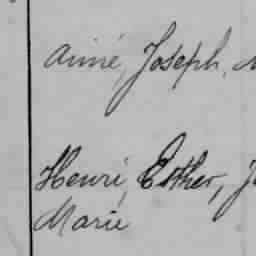 Aimé, Joseph,
Henri, Esther,
Marie